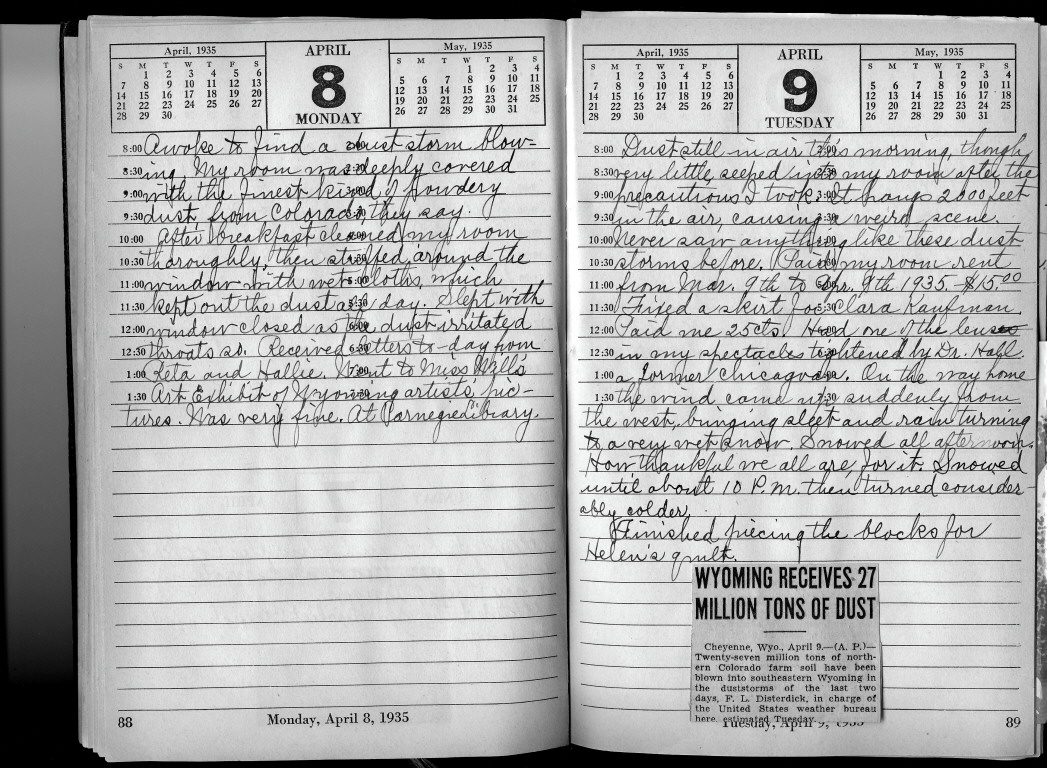 April, 1935
S M T W T F S
1 2 3 4 5 6
7 8 9 10 11 12 13
14 15 16 17 18 19 20
21 22 23 24 25 26 27
28 29 30
APRIL
8
MONDAY
May, 1935
S M T W T F S
1 2 3 4
5 6 7 8 9 10 11
12 13 14 15 16 17 18
19 20 21 22 23 24 25
26 27 28 29 30 31
8:00 Awoke to find a dust storm blow-
8:30 ing. My room was deeply covered
9:00 with the finest kind of powdery
9:30 dust from Colorado they say.
10:00 After breakfast cleaned my room
10:30 thoroughly, then stuffed around the
11:00 window with wet cloths, which
11:30 kept out the dust all day. Slept with
12:00 window closed as the dust irritated
12:30 throats so. Received letters to-day from
1:00 Leta and Hallie. Went to Miss Will's
1:30 Art Exhibit of Wyoming artists' pic-
tures. Was very fine. At Carnegie Library.
88
Monday, April 8, 1935
April, 1935
S M T W T F S
1 2 3 4 5 6
7 8 9 10 11 12 13
14 15 16 17 18 19 20
21 22 23 24 25 26 27
28 29 30
APRIL
9
TUESDAY
May, 1935
S M T W T F S
1 2 3 4
5 6 7 8 9 10 11
12 13 14 15 16 17 18
19 20 21 22 23 24 25
26 27 28 29 30 31
8:00 Dust still in air this morning, though
8:30 very little, seeped into my room after the
9:00 precautions I took. It hangs 2000 feet
9:30 in the air, causing a weird scene.
10:00 Never saw anything like these dust
10:30 storms before. Paid my room rent
11:00 from Mar. 9th to Apr. 9th 1935.-$15.00
11:30 Fixed a skirt for Clara Kaufman.
12:00 Paid me 25cts. Had one of the lenses
12:30 in my spectacles tightened by Dr. Hall.
1:00 a former Chicagoan. On the way home
1:30 the wind came up suddenly from
the west, bringing sleet and rain turning
to a very wet snow. Snowed all afternoon.
How thankful we all are, for it. Snowed
until about 10 P.M. then turned consider-
ably colder.
Finished piecing the blocks for
Helen's quilt.
WYOMING RECEIVES 27
MILLION TONS OF DUST
Cheyenne, Wyo., April 9.—(A. P.)—
Twenty-seven million tons of north-
ern Colorado farm soil have been
blown into southeastern Wyoming in
the duststorms of the last two
days, F. L. Disterdick, in charge of
the United States weather bureau
here, estimated Tuesday.
Tuesday, April 9, 1935
89